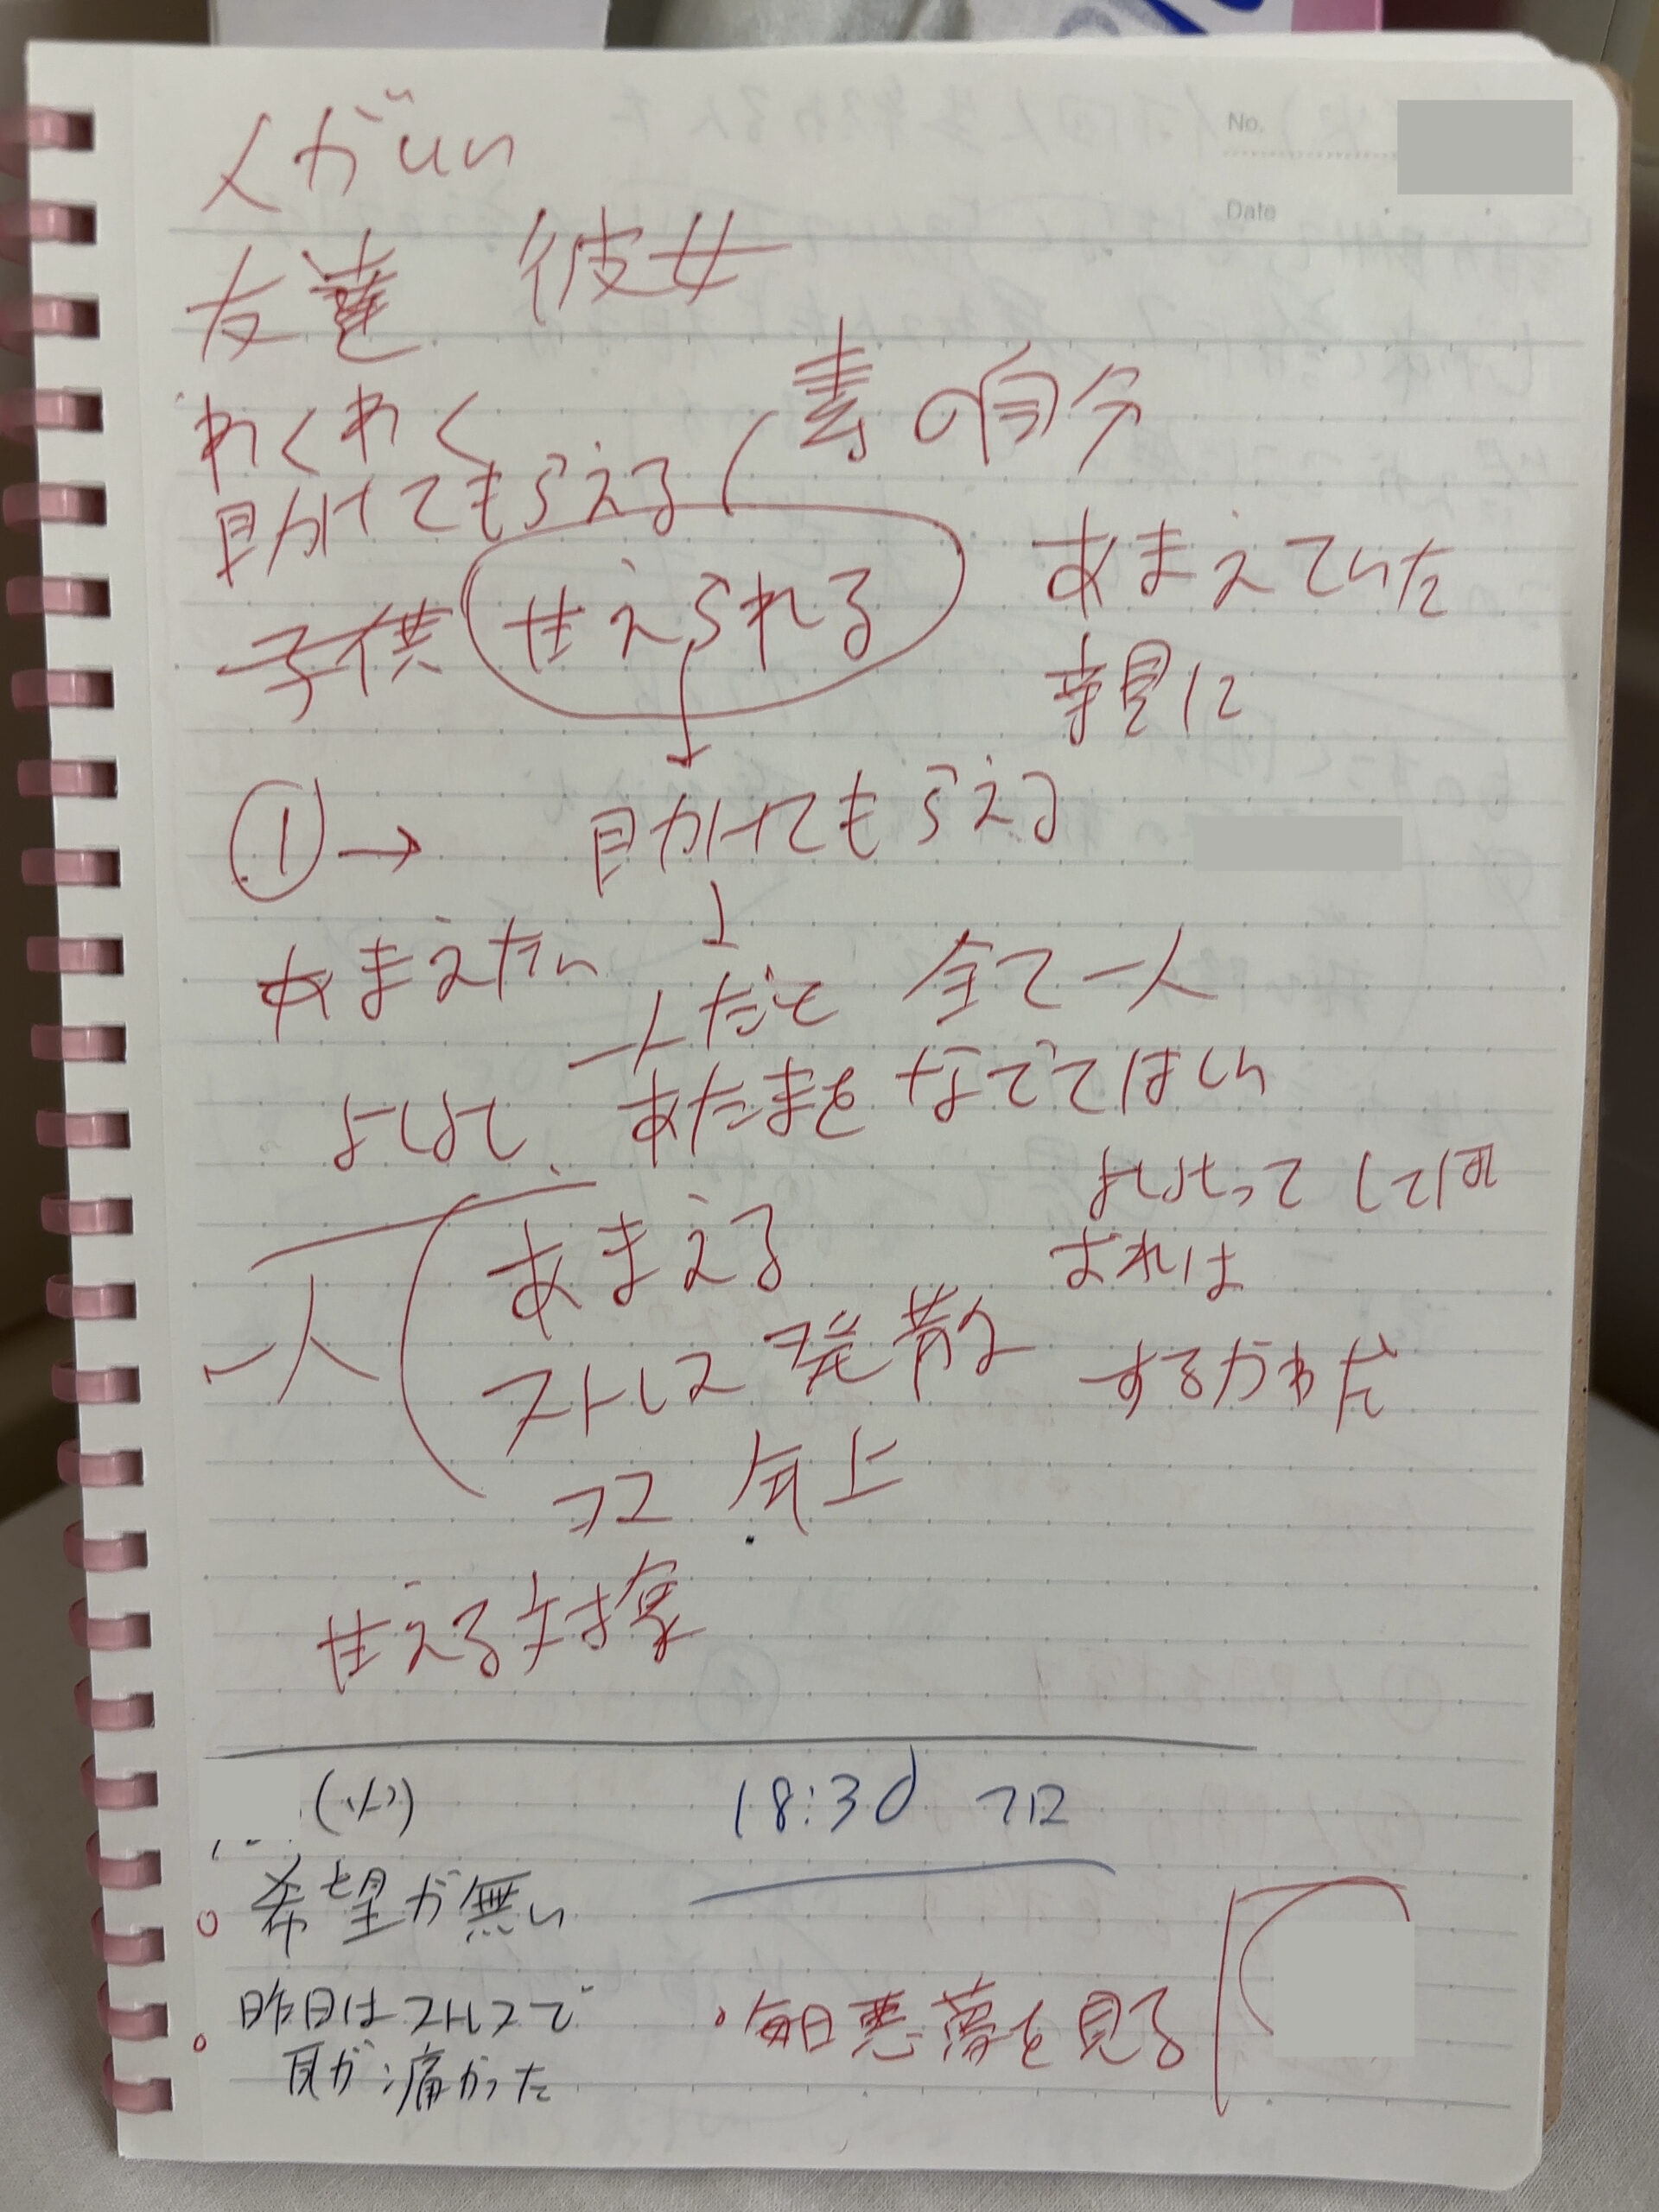 No.
Date
人がいい
友達 彼女
わくわく 素の自分
助けてもらえる
あまえていた
子供 甘えられる
親に
①→ 助けてもらえる
↓
あまえたい
一人だと 全て一人
よしよし、あたまをなでてほしい
よしよしって して
あまえる
おれは
一人
ストレス発散
するがわだ
向上
甘える対象
(火) 18:30 フロ
希望が無い
昨日はストレスで
・毎日悪夢を見る
痛かった